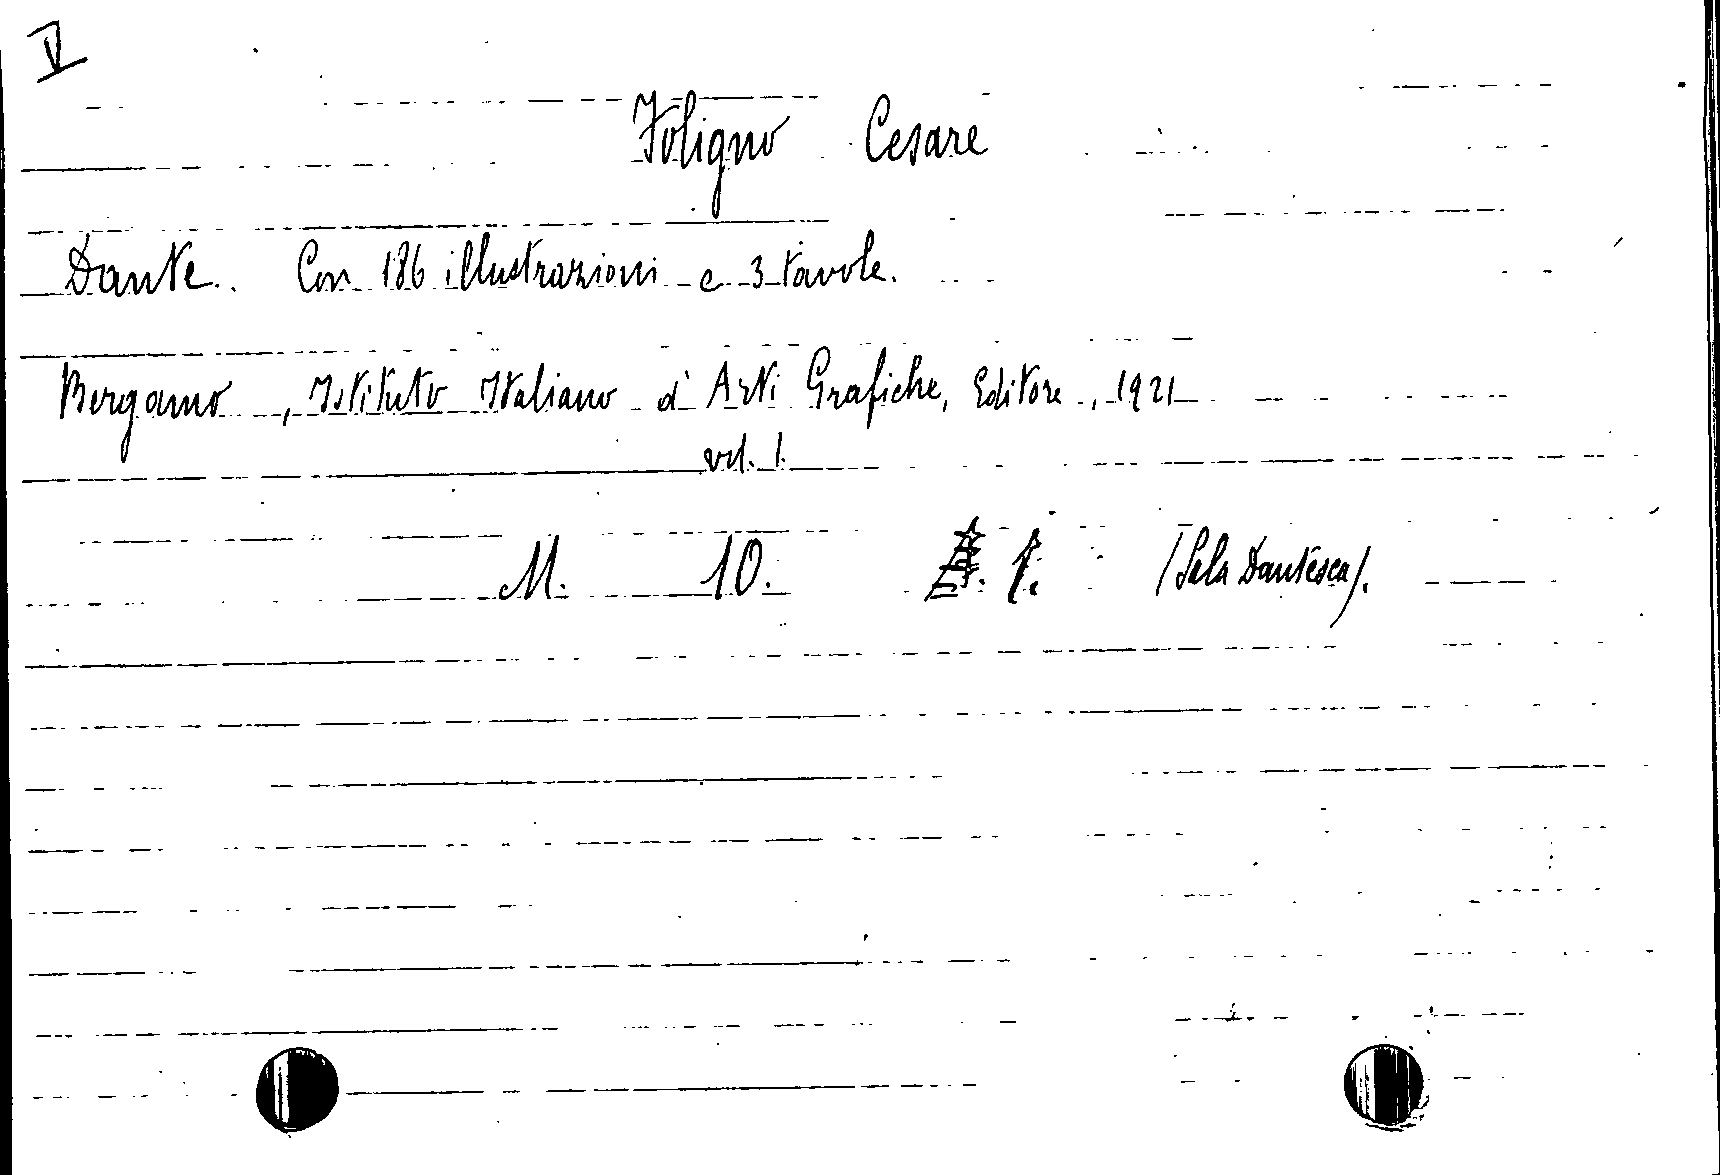 V
Foligno Cesare
Dante. Con 186 illustrazioni e 3 tavole.
Bergamo, Istituto Italiano d'Arti Grafiche, Editore, 1921
vol. 1.
M. 10. 1. (Sala Dantesca).